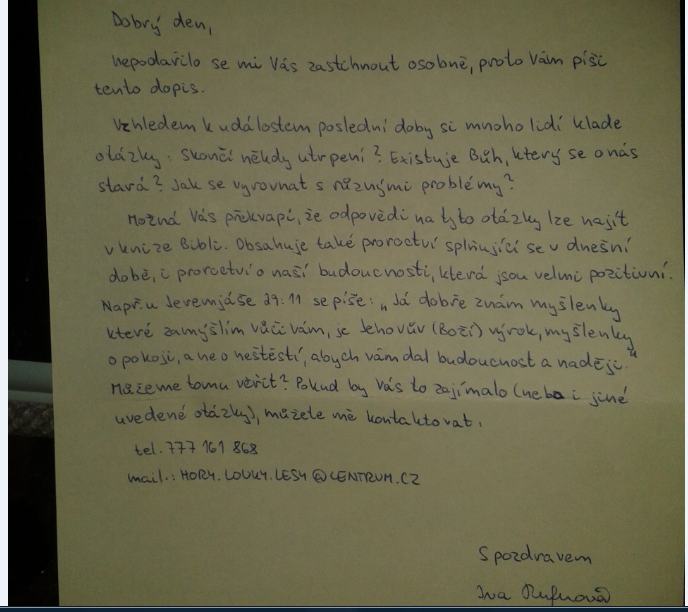 Dobrý den,
nepodařilo se mi Vás zastihnout osobně, proto Vám píši
tento dopis.
Vzhledem k událostem poslední doby si mnoho lidí klade
otázky: Skončí někdy utrpení? Existuje Bůh, který se o nás
stará? Jak se vyrovnat s různými problémy?
Možná Vás překvapí, že odpovědi na tyto otázky lze najít
v knize Bibli. Obsahuje také proroctví splňující se v dnešní
době, i proroctví o naší budoucnosti, která jsou velmi pozitivní.
Např. u Jeremjáše 29:11 se píše: „Já dobře znám myšlenky
které zamýšlím vůči vám, je Jehovův (Boží) výrok, myšlenky
o pokoji, a ne o neštěstí, abych vám dal budoucnost a naději.“
Můžeme tomu věřit? Pokud by Vás to zajímalo (nebo i jiné
uvedené otázky), můžete mě kontaktovat.
tel. 777 161 868
mail.: HORY.LOUKY.LESY@CENTRUM.CZ
S pozdravem
Iva